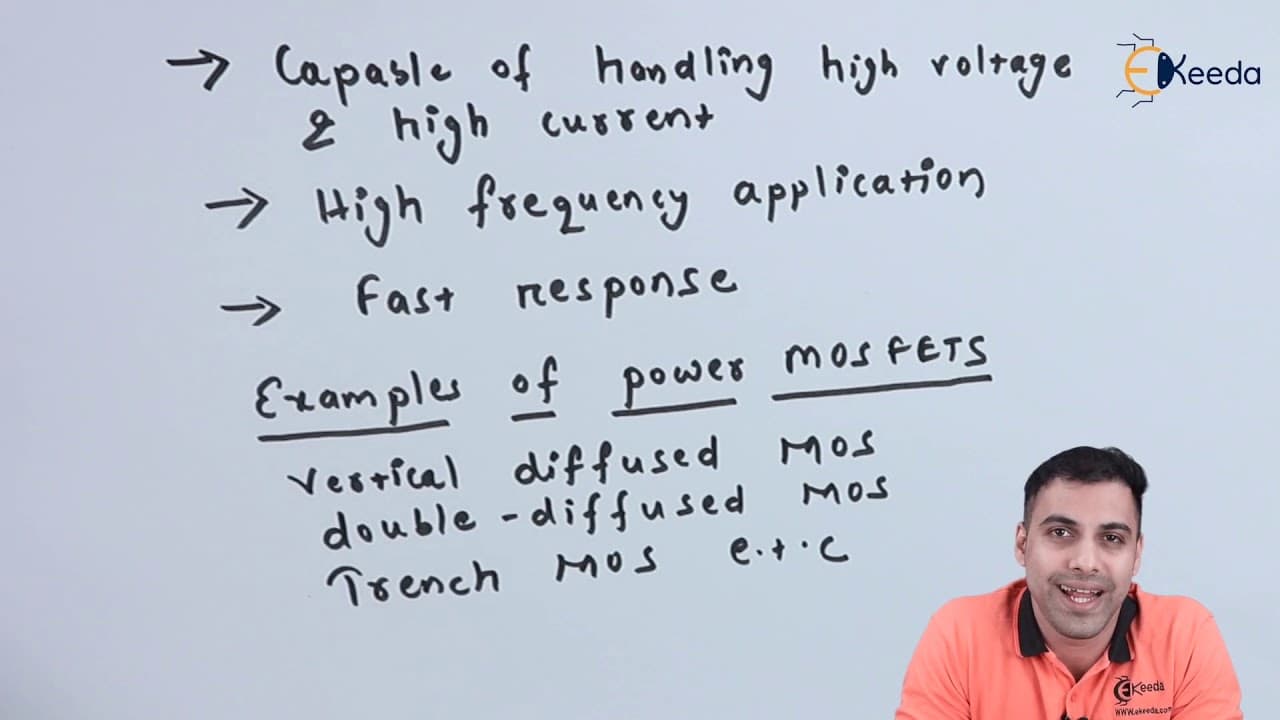 → Capable of handling high voltage
& high current
→ High frequency application
→ Fast response
Examples of power MOSFETS
Vertical diffused MOS
double-diffused MOS
Trench MOS e.t.c
EKeeda
EKeeda
www.ekeeda.com